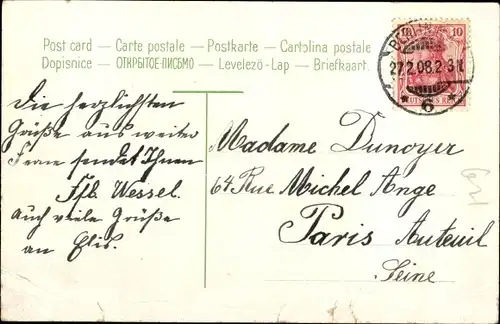 Post card – Carte postale – Postkarte – Cartolina postale
Dopisnice – ОТКРЫТОЕ ПИСЬМО – Levelező-Lap – Briefkaart.
10
DEUTSCHES REICH
27.2.08.2-3N
* 6 *
Die herzlichsten
Grüße aus weiter
Ferne sendet Ihnen
Wessel.
Auch viele Grüße
an Elis.
Madame Dunoyer
64 Rue Michel Ange
Paris Auteuil
Seine